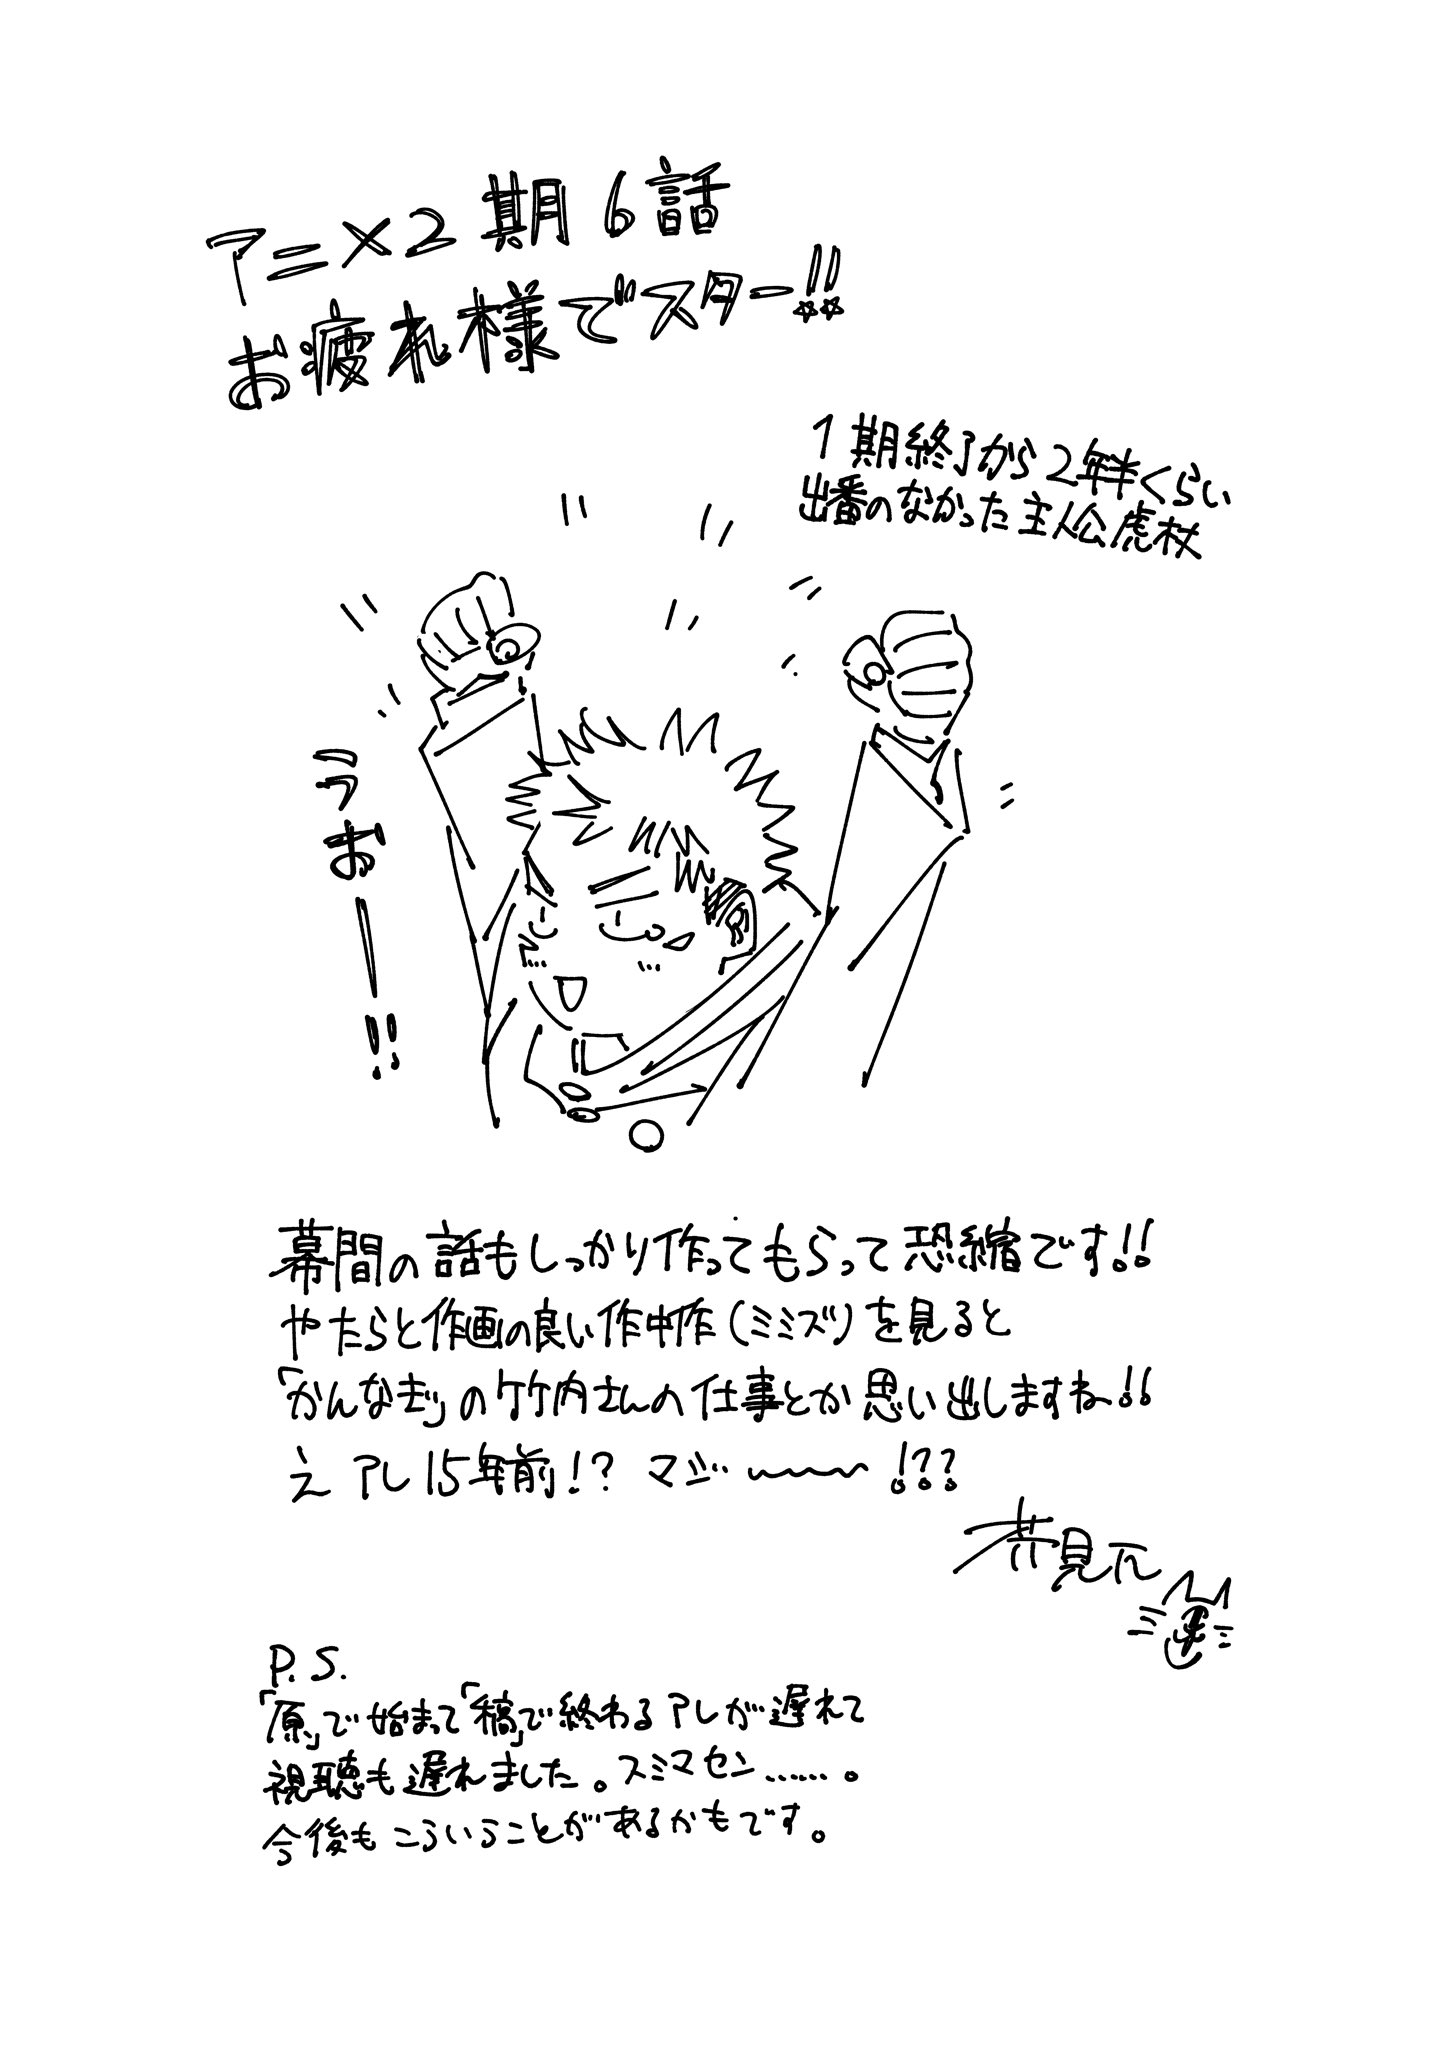 アニメ2期6話
お疲れ様でスター!!
1期終了から2年半くらい
出番のなかった主人公虎杖
うおー!!
幕間の話もしっかり作ってもらって恐縮です!!
やたらと作画の良い作中作(ミミズ)を見ると
「かんなぎ」の竹内さんの仕事とか思い出しますねー!!
え アレ15年前!? マジ〜〜〜!??
芥見下々
P.S.
「原」で始まって「稿」で終わるアレが遅れて
視聴も遅れました。スミマセン……。
今後もこういうことがあるかもです。